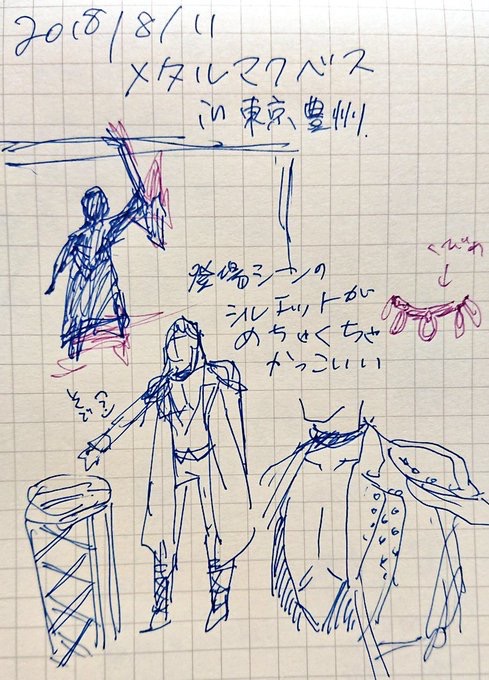 2018/8/11
メタルマクベス
in 東京豊州
登場シーンの
シルエットが
めちゃくちゃ
かっこいい
くびわ
↓
そで